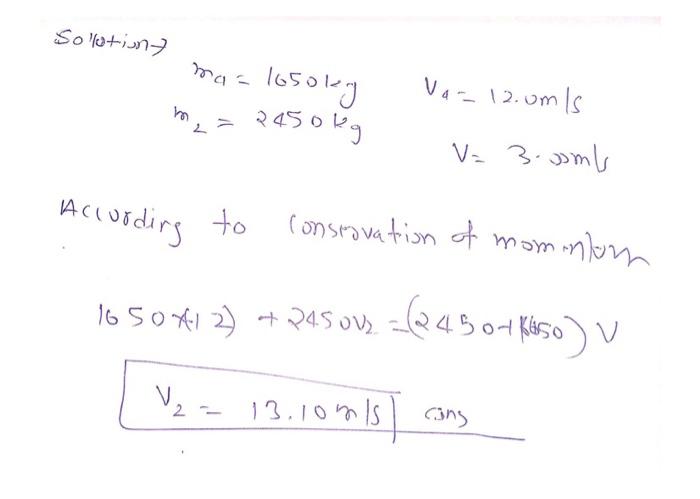 Solution→
m₁ = 1650 kg V₁ = 12.0 m/s
m₂ = 2450 kg
V = 3.00 m/s
According to conservation of momentum
1650 × (-12) + 2450V₂ = (2450 + 1650) V
V₂ = 13.10 m/s